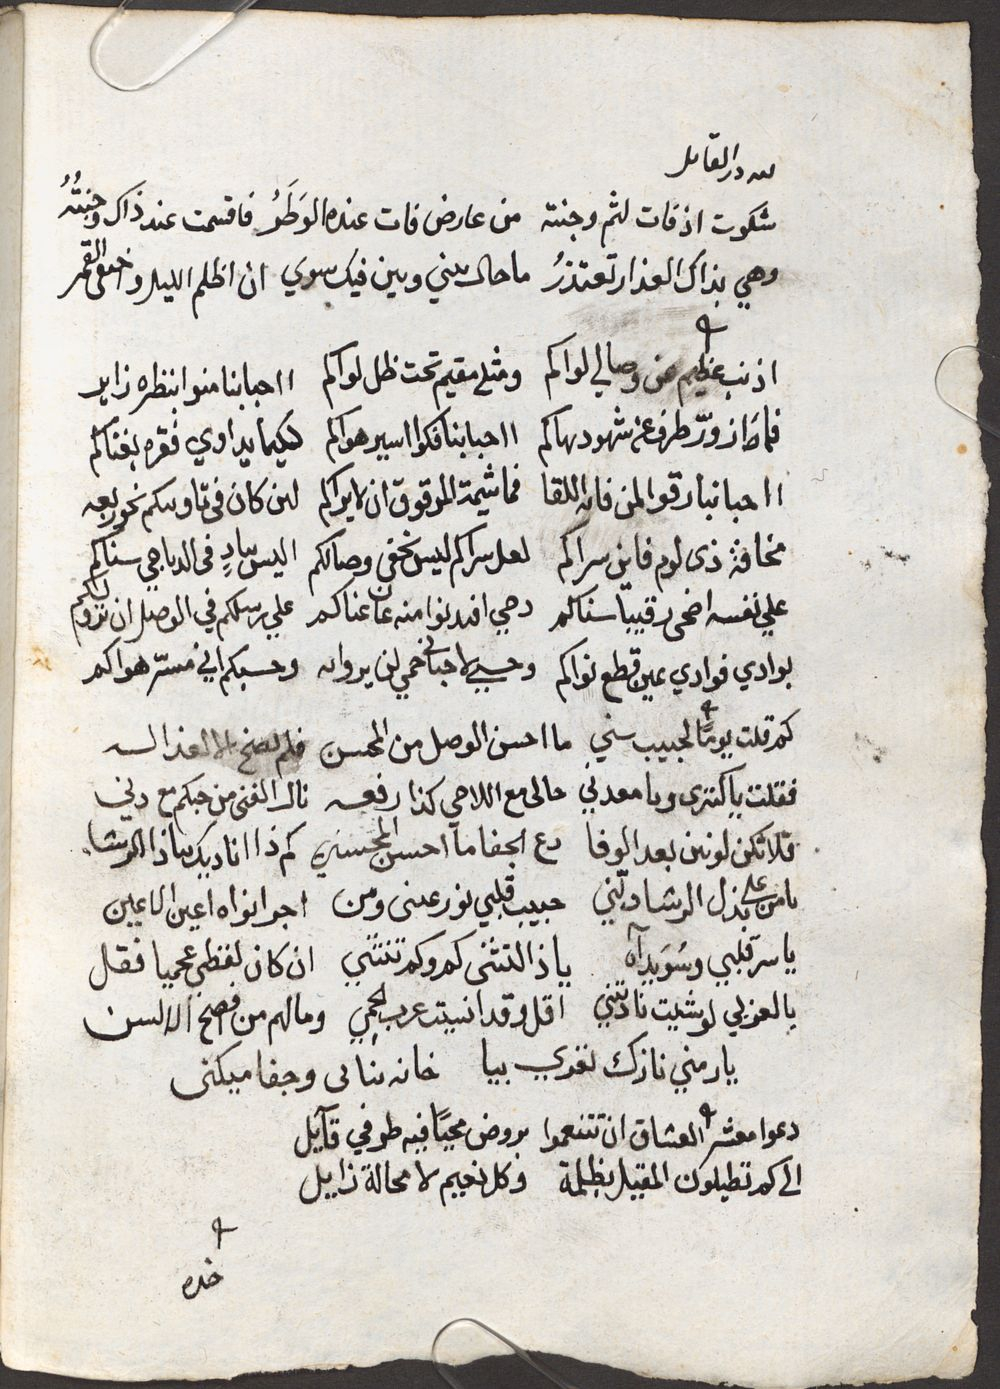 لله در القايل
شكوت اذ فات لثم وجنته من عارض فات عنده الوَطَرُ فاقسمت عند ذاك وجنتُهُ
وهي بذاك العذار تعتذرُ ما حال بيني وبين فيك سوي ان اظلم الليل واختفى القمر
اذنب عظيم عن وصالي لواكم ومثلي مقيم تحت ظل لواكم ااحبابنا منوا بنظره زاير
فما ازورّ طرفي عن شهود بهاكم ااحبابنا فكوا اسير هواكم لكيما يداوي فقره بغناكم
ااحبابنا رقوا لمن فاته اللقا فما شيمة الموقوق ان لا يراكم لئن كان في تاويبكم نحو ربعه
مخافة ذي لوم فاين سراكم لعل سراكم ليس يخفي وصالكم اليس بيادٍ في الدياجي سناكم
علي نفسه اضحى رقيباً سناكم دعي افتدنوا منه عان عناكم علي رسلكم في الوصل ان تروم
بوادي فوادي عين قطع نواكم وحسبي لاحبابي حمي لن يروانه وحسبكم اني مسرّ هواكم
كم قلت يومًا لحبيب سني ما احسن الوصل من المحسن فلم يصخ الا لعذاله
فقلت يا كنزي ويا معدني حالي مع اللاحي كذا رفعه نال الفنى من حبكم مع دني
فلا تكن لونين بعد الوفا دع الجفا ما احسن المحسني كم ذا اناديك بياذا الرشا
يا من علي بذل الرشا دلني حبيب قلبي نور عيني ومن اجرا نواه اعين الاعين
يا سر قلبي وسُوَيداه يا ذا التثنى كم وكم تنثني ان كان لفظي عجميا فقل
بالعربي لو شيت نادتني اقل وقد انسيت عرب الحمي وما لهم من افصح الالسن
يار مني نازك نقدي بيا خانه بناى وجفا ميكنى
دعوا معشر العشاق ان تتنعموا بروض محيّا فيه طرفي قايل
الي كم تطيلون المقيل بظلمة وكل نعيم لا محالة زايل
خده